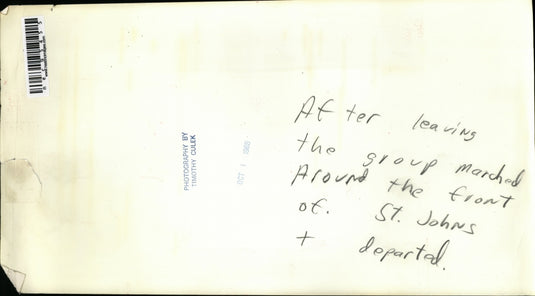 After leaving
the group marched
Around the front
of. St. Johns
+ departed.
PHOTOGRAPHY BY
TIMOTHY CULEK
OCT 1 1969